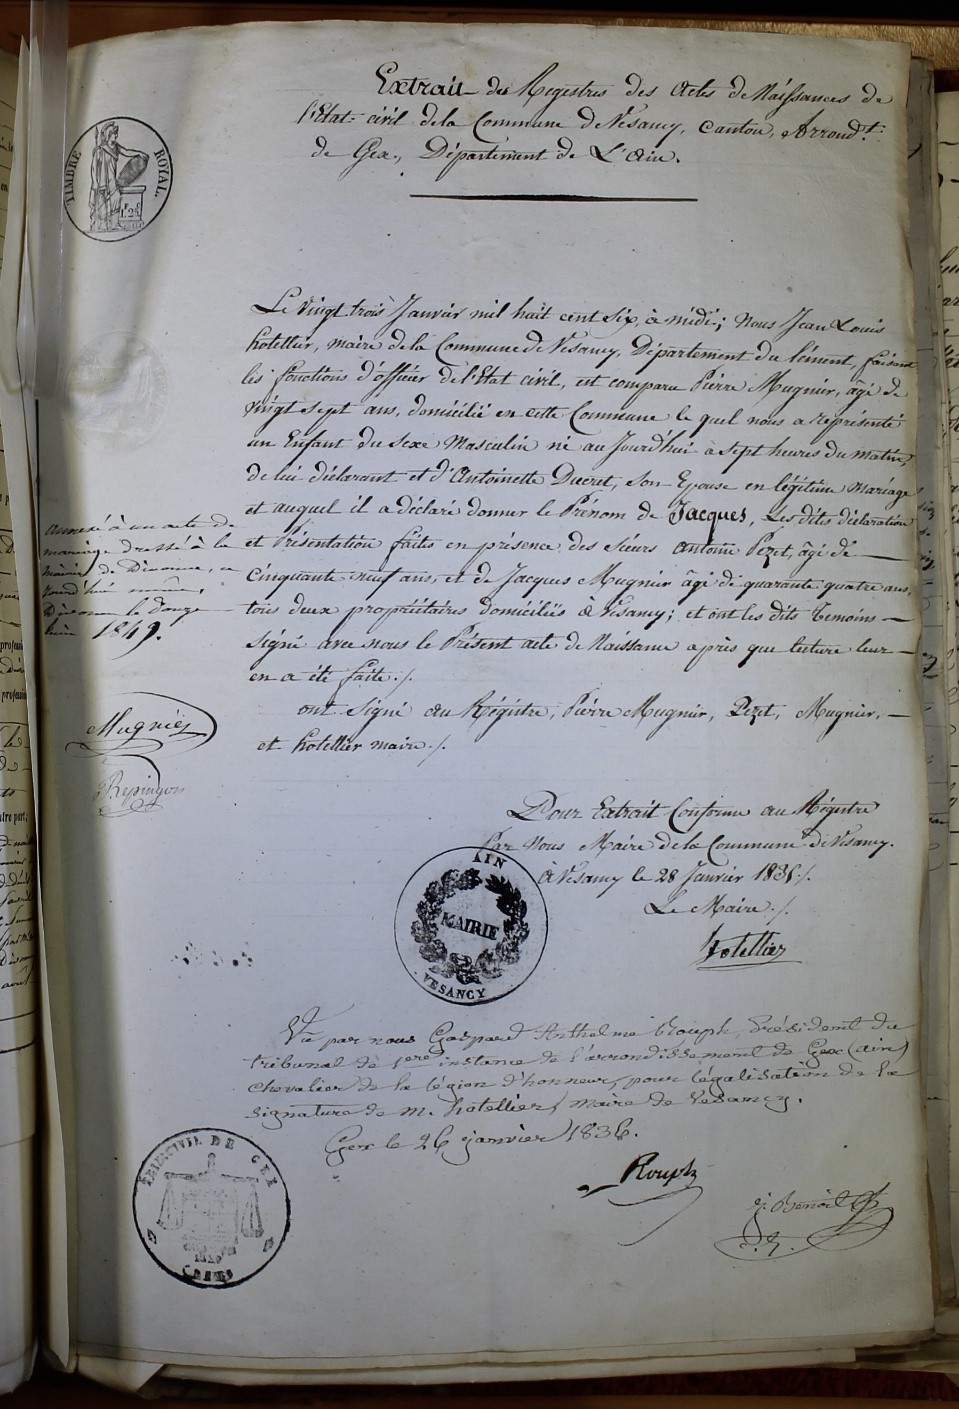 Extrait des Registres des Actes de Naissances de
l'Etat civil de la Commune de Vésancy, Canton, Arrondt.
de Gex, Département de L'Ain.
TIMBRE ROYAL.
Le vingt trois Janvier mil huit cent six, à midi; Nous Jean Louis
hotellier, maire de la Commune de Vésancy, Département du Lément, faisant
les fonctions d'officier de l'Etat civil, est comparu Pierre Mugnier, âgé de
vingt sept ans, domicilié en cette Commune le quel nous a représenté
un Enfant du sexe Masculin né au Jourd'hui à sept heures du matin,
de lui déclarant et d'Antoinette Ducret, son Epouse en légitime Mariage
et auquel il a déclaré donner le Prénom de Jacques, Les dites déclaration
et Présentation faits en présence des sieurs Antoine Pezet, âgé de
cinquante neuf ans, et de Jacques Mugnier âgé de quarante quatre ans,
tous deux propriétaires domiciliés à Vésancy; et ont les dits Temoins
signé avec nous le Présent acte de Naissance après que lecture leur
en a été faite ./.
ont signé au Régistre, Pierre Mugnier, Pezet, Mugnier,
et hotellier maire ./.
annexé à un acte de
mariage dressé à la
mairie de Divonne,
jourd'hui même,
Divonne le douze
juin 1849.
Mugnier
Repingon
Pour Extrait Conforme au Régistre
Par Nous Maire de la Commune de Vésancy.
à Vésancy le 28 Janvier 1836 ./.
Le Maire ./.
hotellier
AIN
MAIRIE
VESANCY
Vu par nous Gaspard Anthelme Rouph, Président du
tribunal de 1ere instance de l'arrondissement de Gex (ain)
chevalier de la légion d'honneur, pour légalisation de la
signature de m. hotellier, maire de Vesancy.
Gex le 26 janvier 1836.
Rouph
Benoit
DE GEX